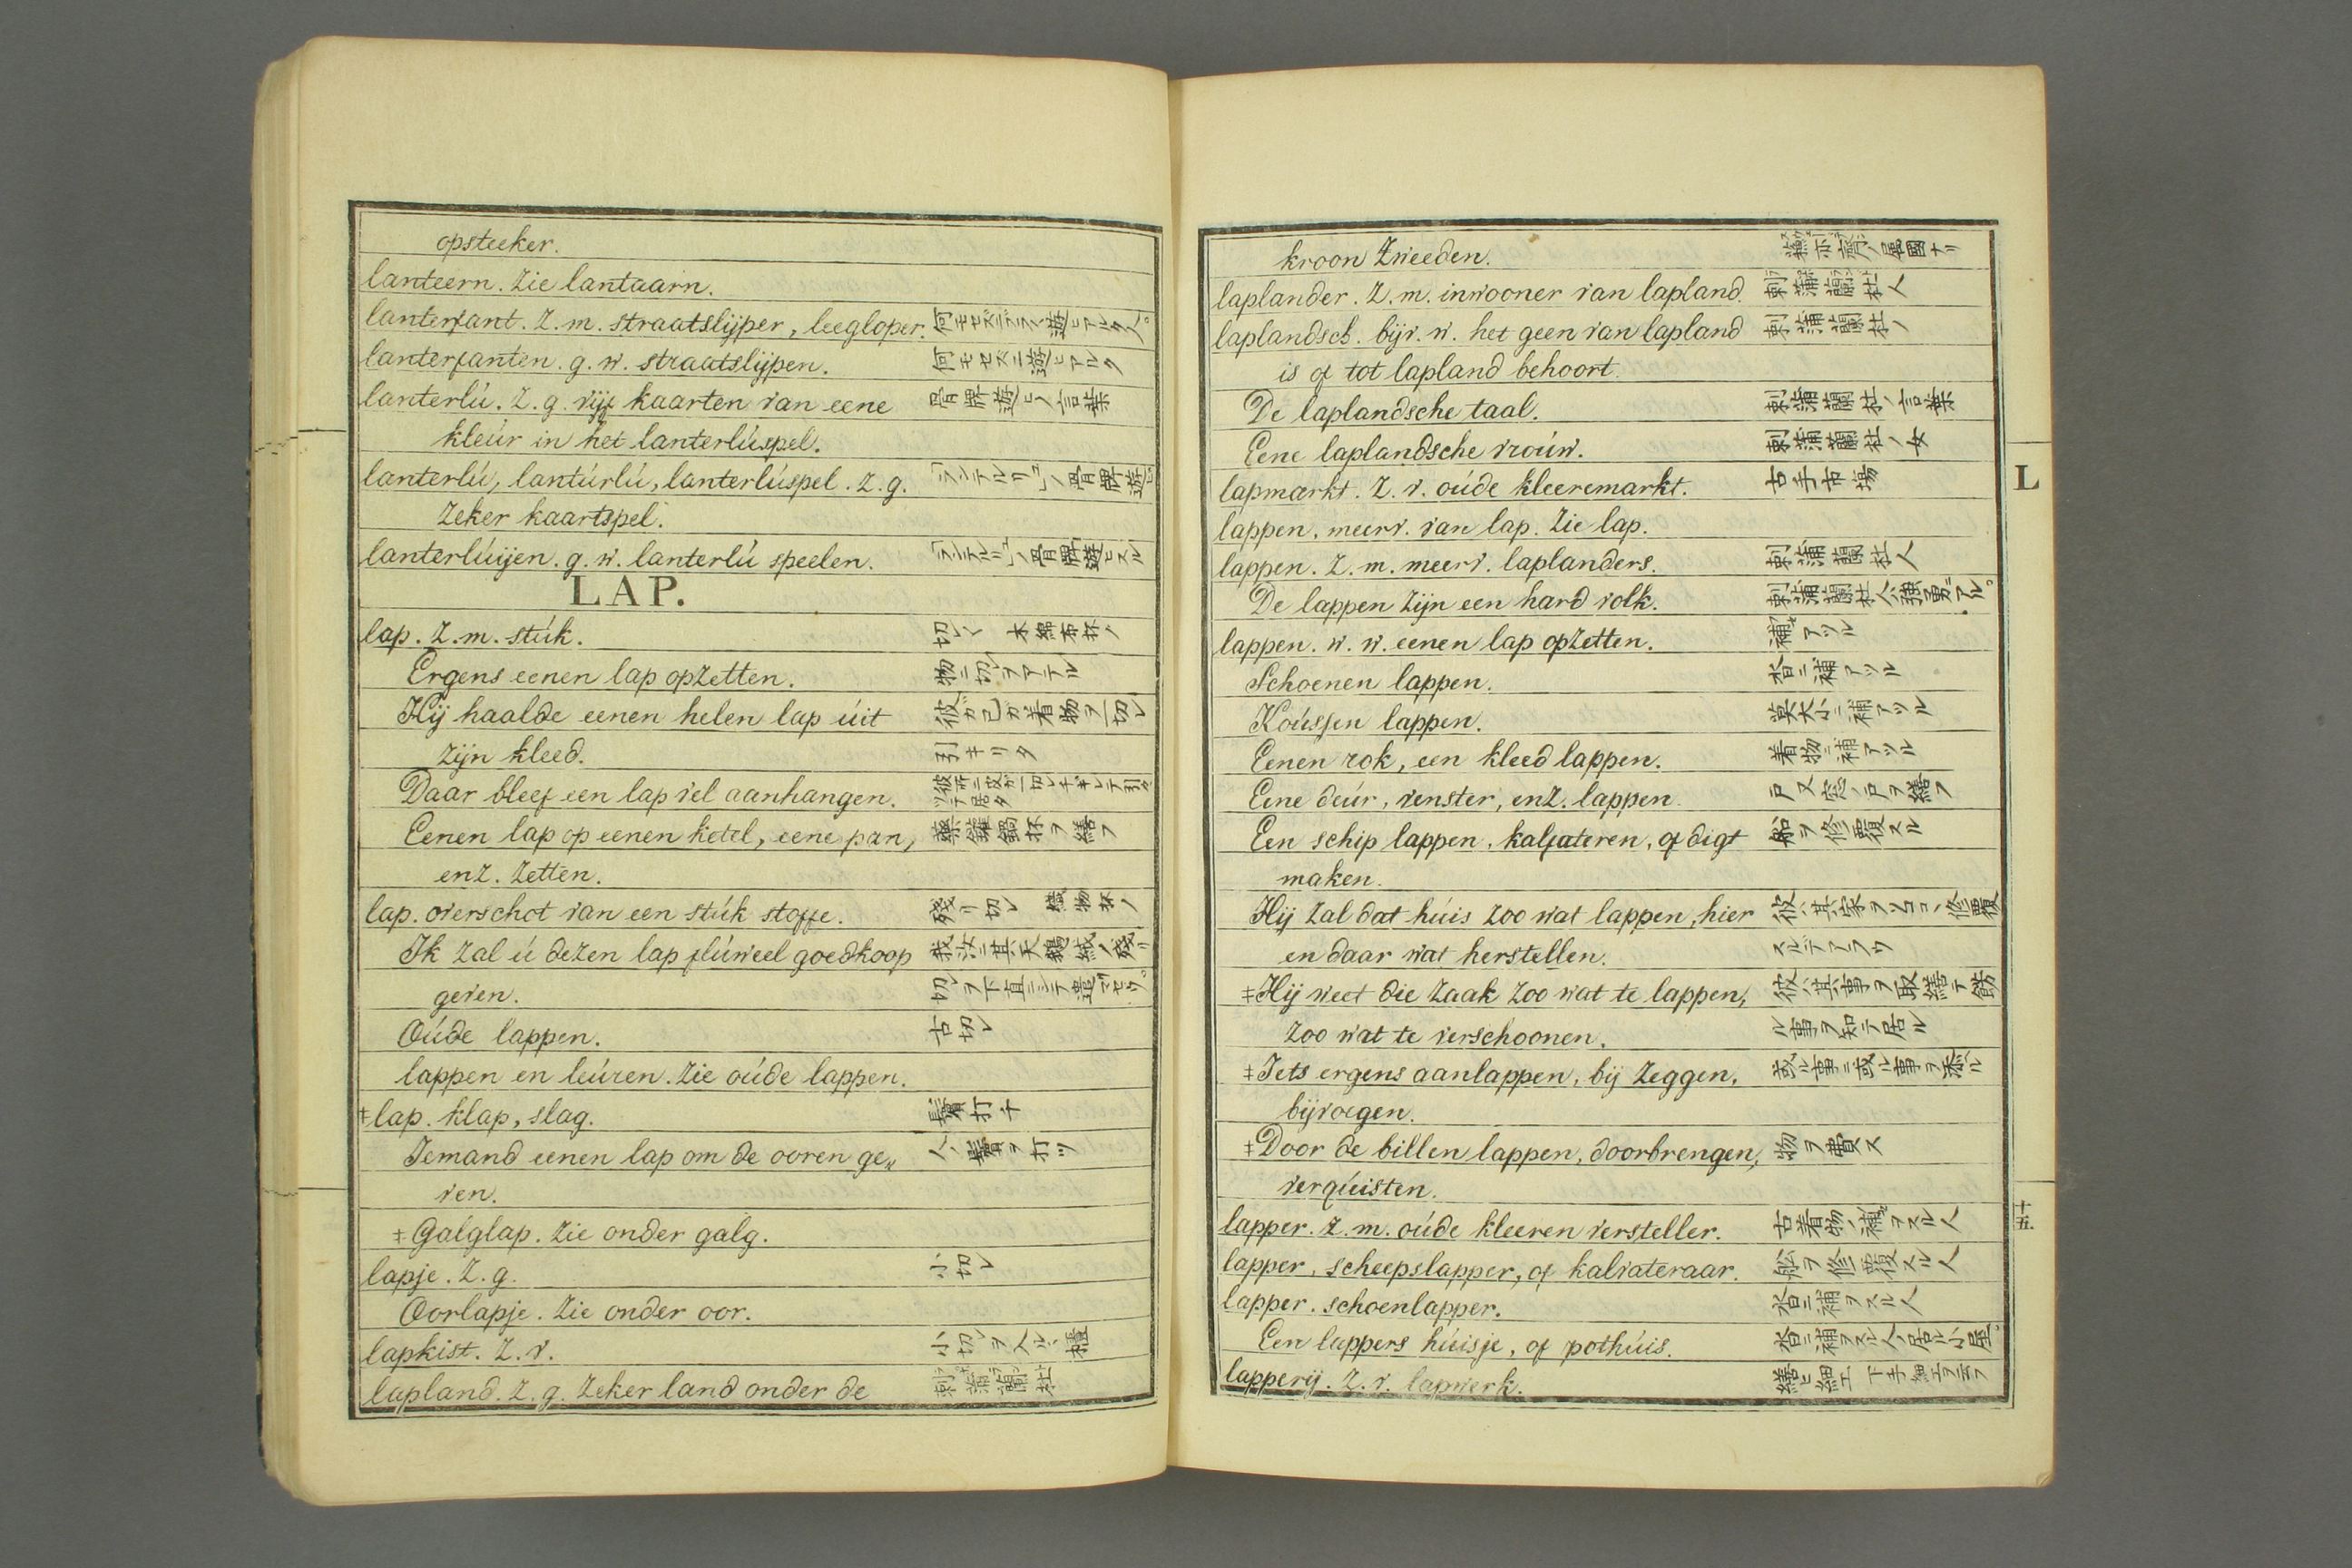 opsteeker.
lanteern. Zie lantaarn.
lanterfant. Z. m. straatslijper, leegloper.
lanterfanten. g. w. straatslijpen. 何モセズニ遊ヒアルク
lanterlú. Z. g. vijf kaarten van eene 骨牌遊ヒノ言葉
kleúr in het lanterlúspel.
lanterlú, lantúrlú, lanterlúspel. Z. g.
Zeker kaartspel.
lanterlúijen. g. w. lanterlú speelen.
LAP.
lap. Z. m. stúk. 切レ 木綿布杯ノ
Ergens eenen lap opzetten. 物ニ切レヲアテル
Hij haalde eenen helen lap úit 彼ガ己ガ着物ヲ一切レ
zijn kleed. 引キリタ
Daar bleef een lap vel aanhangen.
Eenen lap op eenen ketel, eene pan, 藥鑵鍋杯ヲ繕フ
enz. zetten.
lap. overschot van een stúk stoffe. 殘リ切レ 織物杯ノ
Ik zal ú dezen lap flúweel goedkoop 我汝ニ其天鵝絨ノ殘リ
geven.
Oúde lappen. 古切レ
lappen en leúren. Zie oúde lappen.
‡lap. klap, slag. 鬢打チ
Iemand eenen lap om de ooren ge„ 人ノ鬢ヲ打ツ
ven.
‡Galglap. Zie onder galg.
lapje. Z. g. 小切レ
Oorlapje. Zie onder oor.
lapkist. Z. v. 小切レヲ入ル櫃
lapland. Z. g. Zeker land onder de 刺蒲蘭杜
kroon Zweeden.
laplander. Z. m. inwooner van lapland. 刺蒲蘭杜人
laplandsch. bijv. w. het geen van lapland 刺蒲蘭杜ノ
is of tot lapland behoort.
De laplandsche taal. 刺蒲蘭杜ノ言葉
Eene laplandsche vroúw. 刺蒲蘭杜ノ女
lapmarkt. Z. v. oúde kleeremarkt. 古手市場
L
lappen, meerv. van lap. Zie lap.
lappen. Z. m. meerv. laplanders. 刺蒲蘭杜人
De lappen zijn een hard volk.
lappen. w. w. eenen lap opzetten. 補アツル
Schoenen lappen. 沓ニ補アツル
Koússen lappen. 莫大小ニ補アツル
Eenen rok, een kleed lappen. 着物ニ補アツル
Eene deúr, venster, enz. lappen. 戸又窓ノ戸ヲ繕フ
Een schip lappen, kalfateren, of digt 船ヲ修覆スル
maken.
Hij zal dat húis zoo wat lappen, hier
en daar wat herstellen. スルデアラウ
‡Hij weet die zaak zoo wat te lappen, 彼ハ其事ヲ取繕テ餝
zoo wat te verschoonen. ル事ヲ知テ居ル
‡Iets ergens aanlappen, bij zeggen, 或ル事ニ或ル事ヲ添ル
bijvoegen.
‡Door de billen lappen, doorbrengen, 物ヲ費ス
verqúisten.
lapper. Z. m. oúde kleeren versteller. 古着物ノ補ヲスル人
十五
lapper, scheepslapper, of kalvateraar. 舩ヲ修覆スル人
lapper. schoenlapper. 沓ニ補ヲスル人
Een lappers húisje, of pothúis. 沓ニ補ヲスル人ノ居ル小屋
lapperij. Z. v. lapwerk. 繕ヒ細工 下手細工ヲ云フ